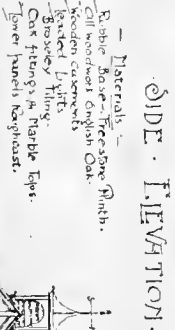 SIDE · ELEVATION ·
— Materials —
Rubble Base — Freestone Plinth.
All woodwork English Oak.
Wooden casements
Leaded Lights
Broseley Tiling.
Oak fittings & Marble Tops.
Lower panels Roughcast.